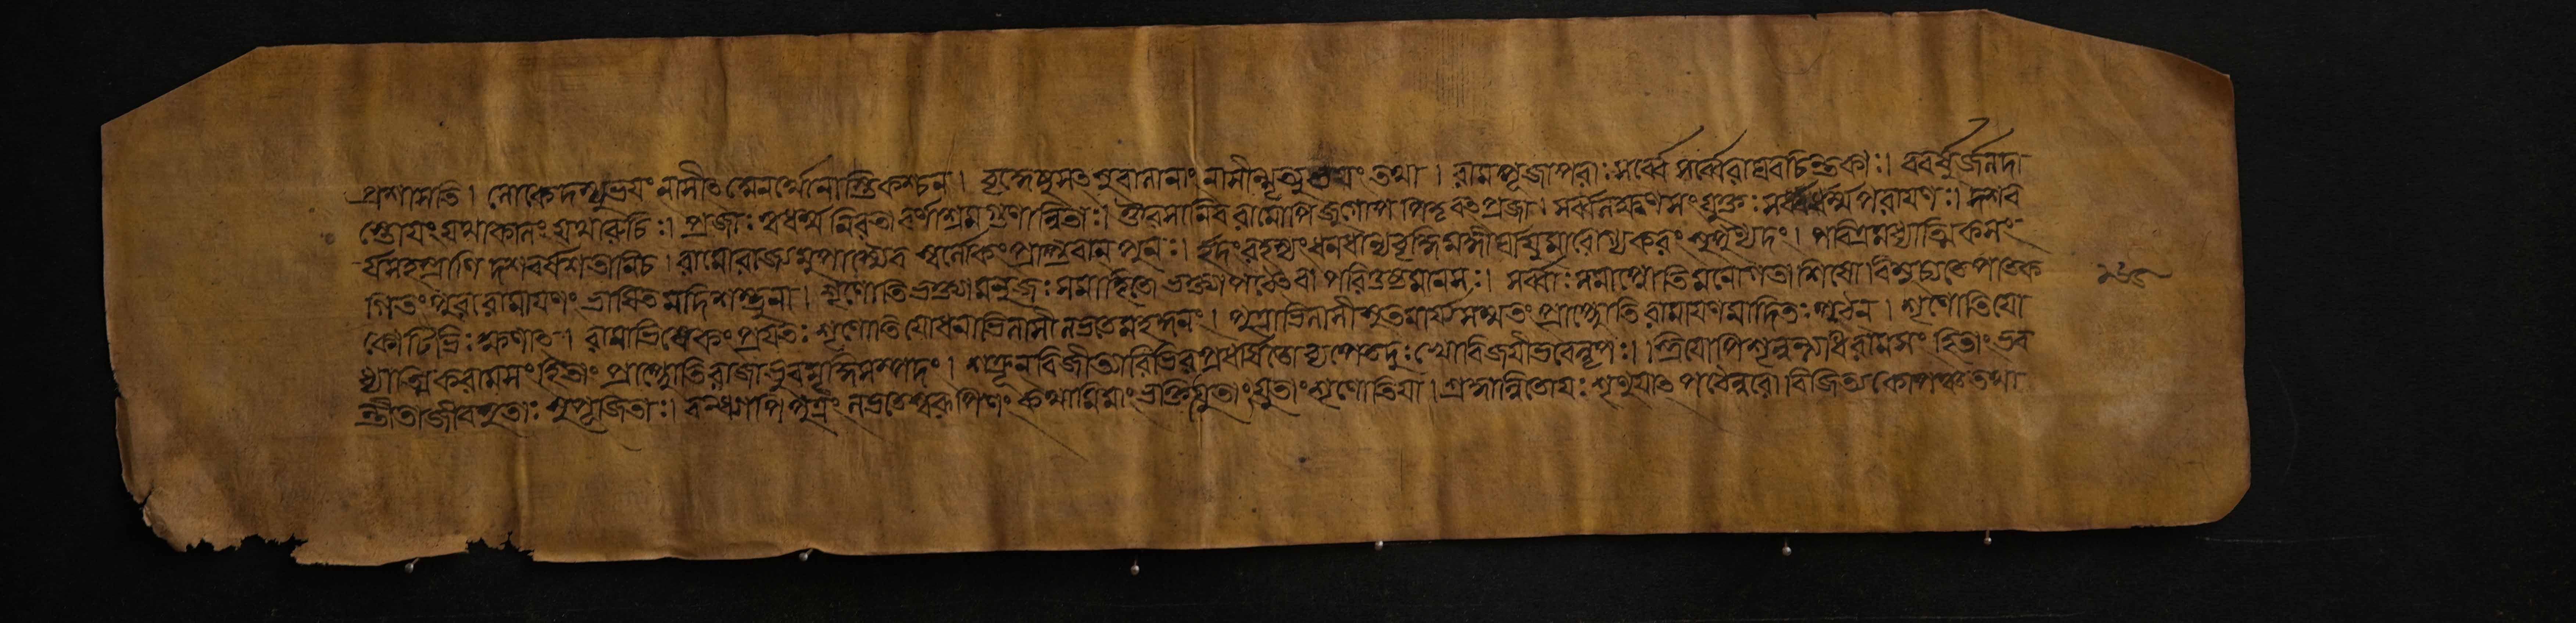 প্রশাসতি। লোকেদস্যুভয়ং নাসীত অনর্থোনাস্তিকশ্চন। বৃদ্ধেষুসতসুবালানাং নাসীন্মৃত্যুভয়ং তথা। রামপূজাপরাঃসর্ব্বে সর্ব্বেরাঘবচিন্তকাঃ। ববর্ষুর্জলদা
স্তোয়ংযথাকালং যথারুচিঃ। প্রজাঃ স্বধর্ম্মনিরতা বর্ণাশ্রমগুণান্বিতাঃ। ঔরসানিব রামোপি জুগোপ পিতৃবতপ্রজা। সর্ব্বলক্ষণসংযুক্তঃ সর্ব্বধর্ম্মপরায়ণঃ। দশব
র্ষসহস্রাণি দশবর্ষশতানিচ। রামোরাজ্যমুপাস্যৈব স্বর্লোকং প্রাপ্তবান পুনঃ। ইদংরহস্যং ধনধান্যবৃদ্ধিমদ্দীর্ঘায়ুরারোগ্যকরং সুপুণ্যদং। পবিত্রমধ্যাত্মিকসং
গিতংপুরা রামায়ণং ভাষিতমাদিশম্ভুনা। শৃণোতিভক্ত্যা মনুজঃ সমাহিতো ভক্ত্যা পঠেদ্বা পরিতুষ্টমানসঃ। সর্ব্বাঃসমাপ্নোতিমনোগতাশিষো বিমুচ্যতেপাতক
কোটিভিঃক্ষণাত। রামাভিষেকংপ্রযতঃ শৃণোতিযোধনাভিলাষী লভতেমহদ্ধনং। পুত্রাভিলাষী সুতমার্য্যসম্মতং প্রাপ্নোতি রামায়ণমাদিতঃপঠন। শৃণোতিযো
ধ্যাত্মিকরামসংহিতাং প্রাপ্নোতিরাজাভুবমৃদ্ধিসম্পদং। শত্রূনবিজীত্যারিভিরপ্রধর্ষিতো ব্যপেতদুঃখো বিজয়ীভবেন্নৃপঃ। স্ত্রিয়োপিশৃন্বন্ত্যধিরামসংহিতাং ভব
ন্তীতাজীবসুতাঃ সুপূজিতাঃ। বন্ধ্যাপি পুত্রং লভতেস্বরূপিণং কথামিমাং ভক্তিযুতাংশৃণোতিযা। শ্রদ্ধান্বিতোযঃ শৃণুয়াত পঠেন্নরো বিজিত্যকোপঞ্চতথা